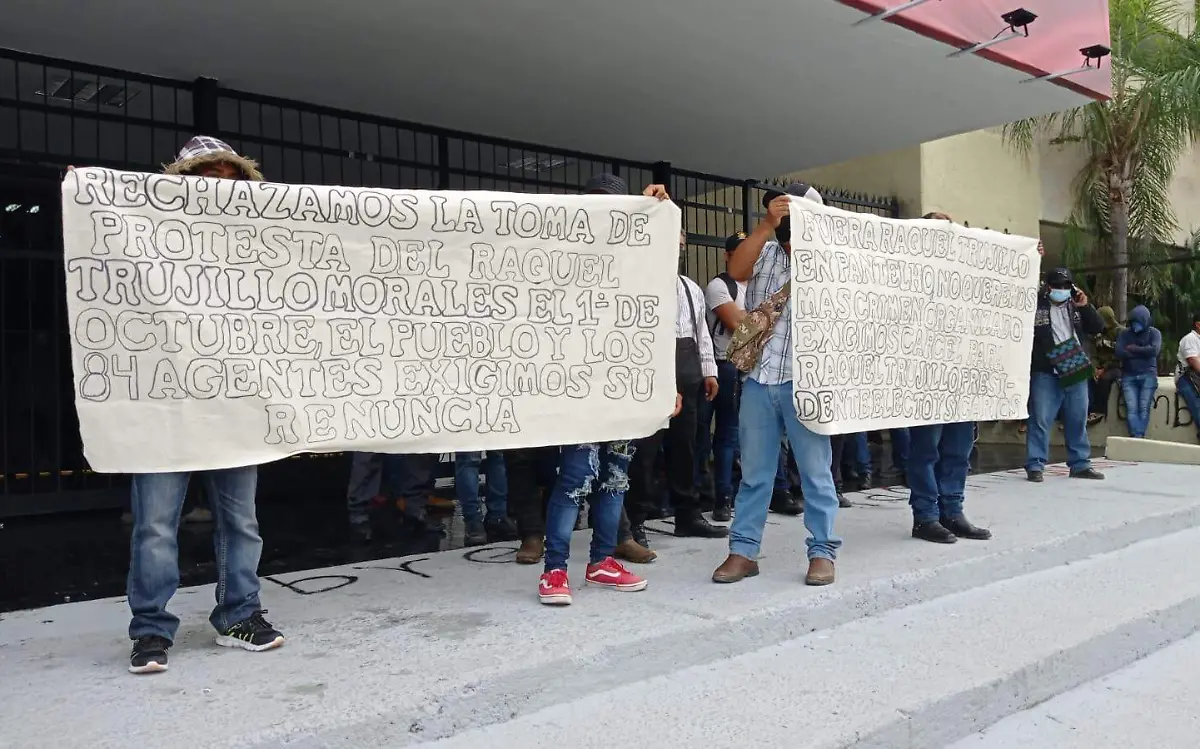 RECHAZAMOS LA TOMA DE
PROTESTA DEL RAQUEL
TRUJILLO MORALES EL 1º DE
OCTUBRE, EL PUEBLO Y LOS
84 AGENTES EXIGIMOS SU
RENUNCIA
FUERA RAQUEL TRUJILLO
EN PANTELHO NO QUEREMOS
MAS CRIMEN ORGANIZADO
EXIGIMOS CARCEL PARA
RAQUEL TRUJILLO PRESI-
DENTE ELECTO Y SICARIOS